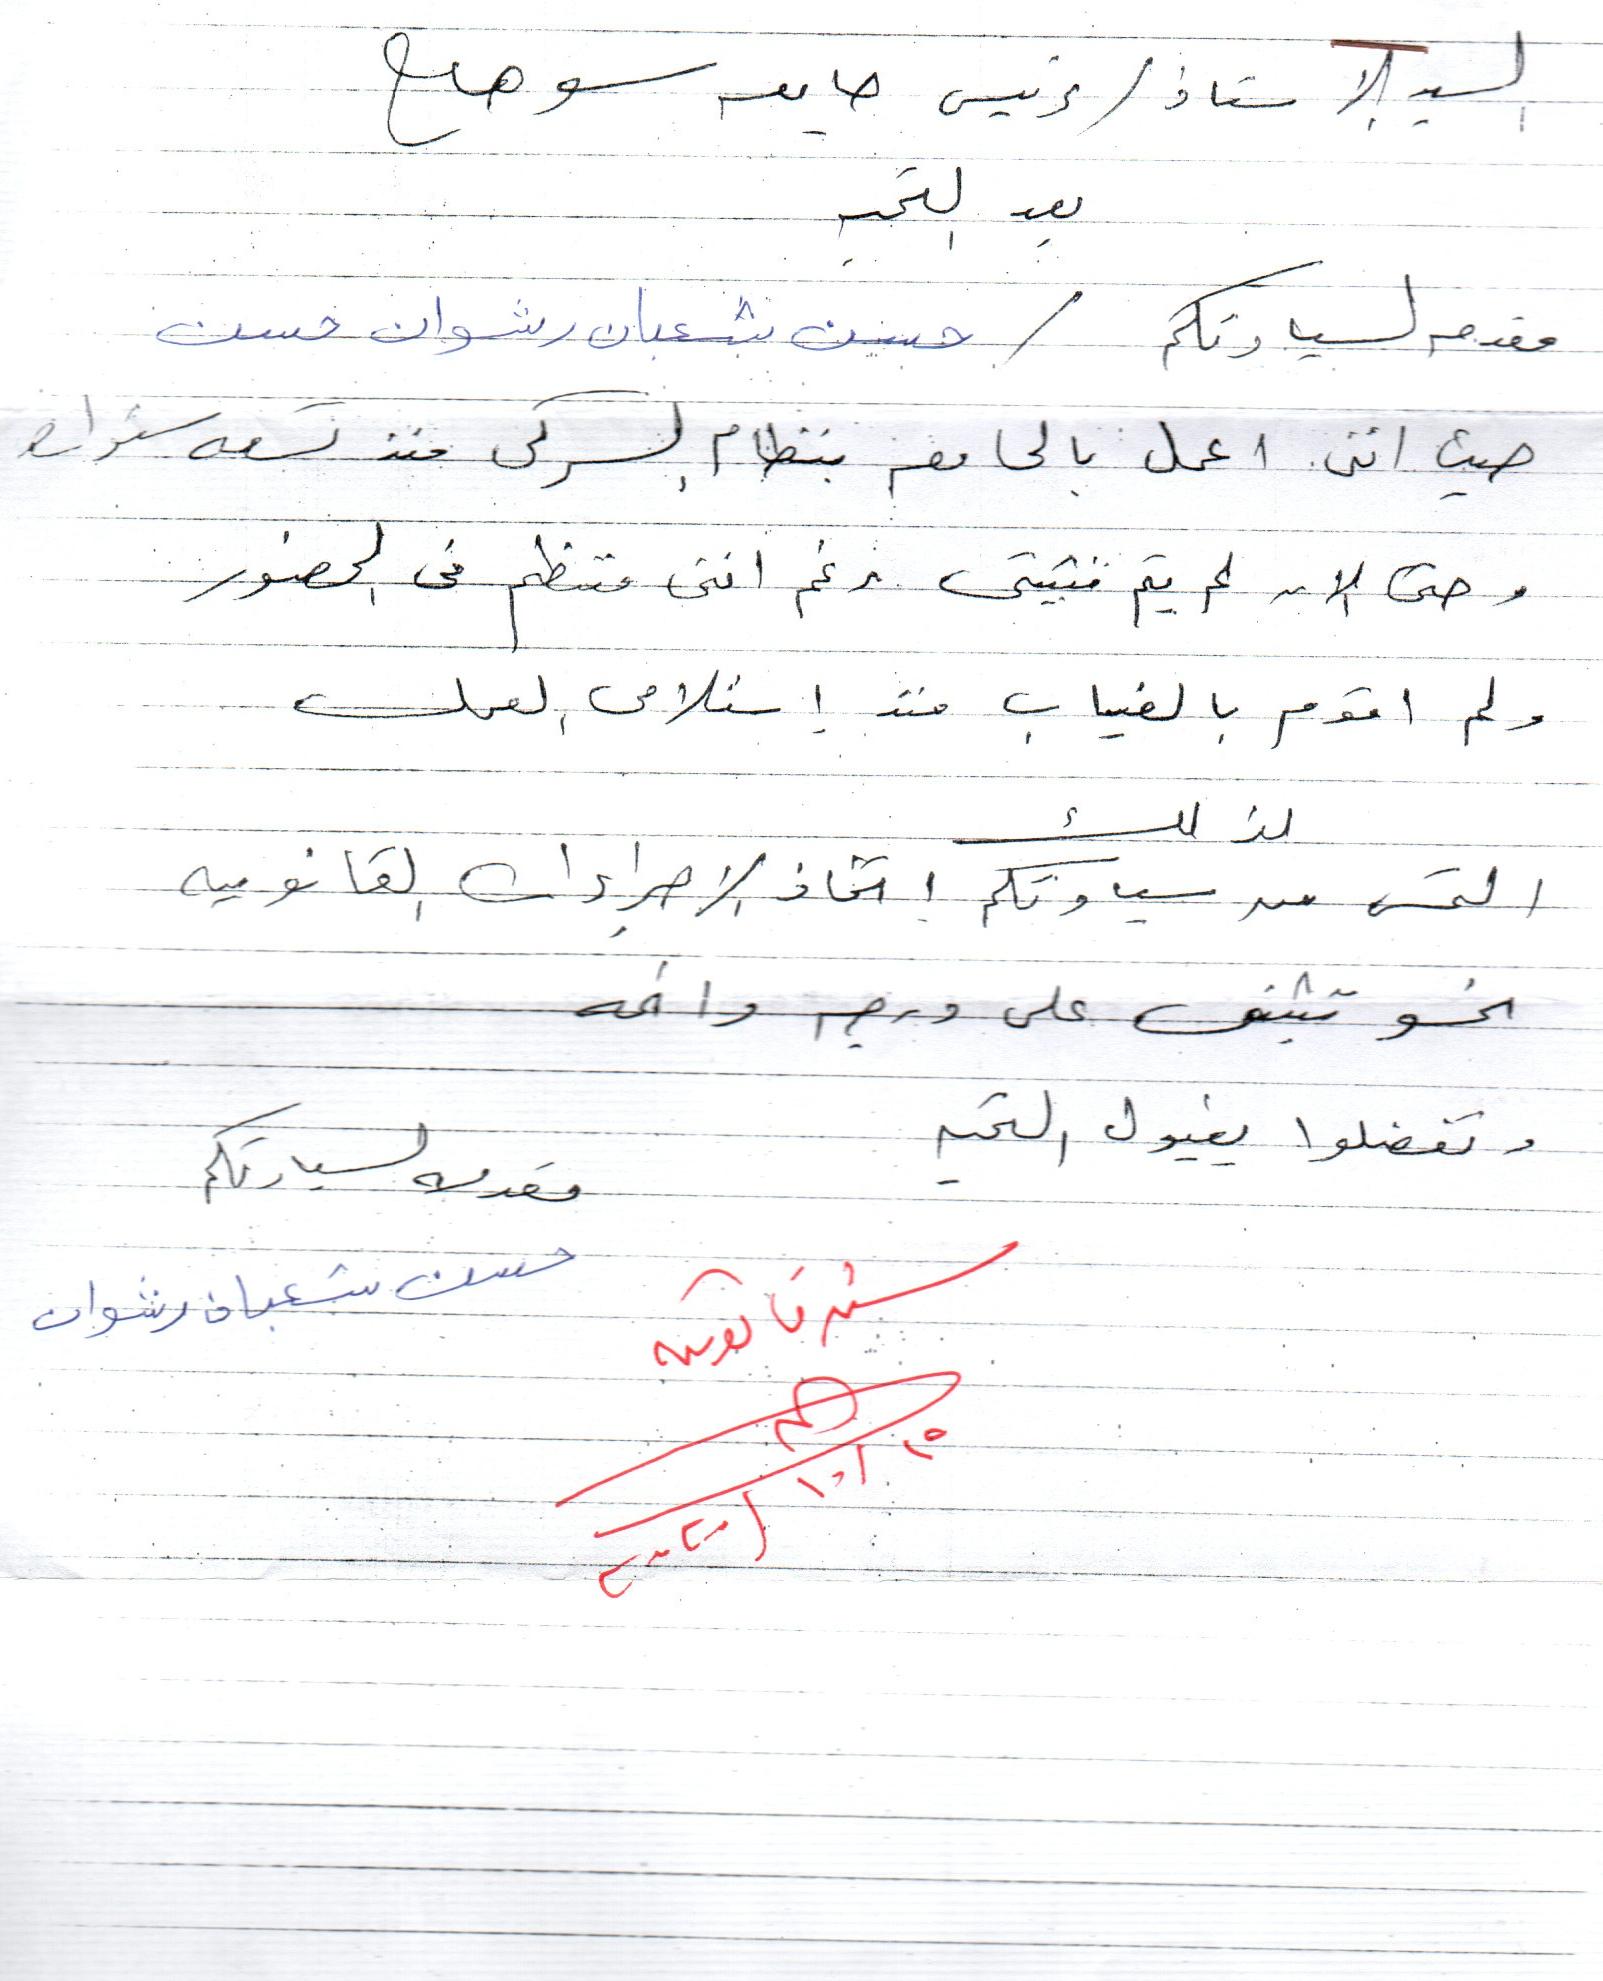 السيد الاستاذ / رئيس جامعه سوهاج
بعد التحيه
مقدمه لسيادتكم / حسن شعبان رشوان حسن
حيث اننى اعمل بالجامعه بنظام السركى منذ تسعه سنوات
وحتى الان لم يتم تثبيتى رغم اننى منتظم فى الحضور
ولم اقوم بالغياب منذ إستلامى العمل
لذلك
التمس من سيادتكم إتخاذ الاجراءات القانونيه
نحو تثبيتى على درجه دائمه
وتفضلوا بقبول التحيه
مقدمه لسيادتكم
حسن شعبان رشوان
قانونيه